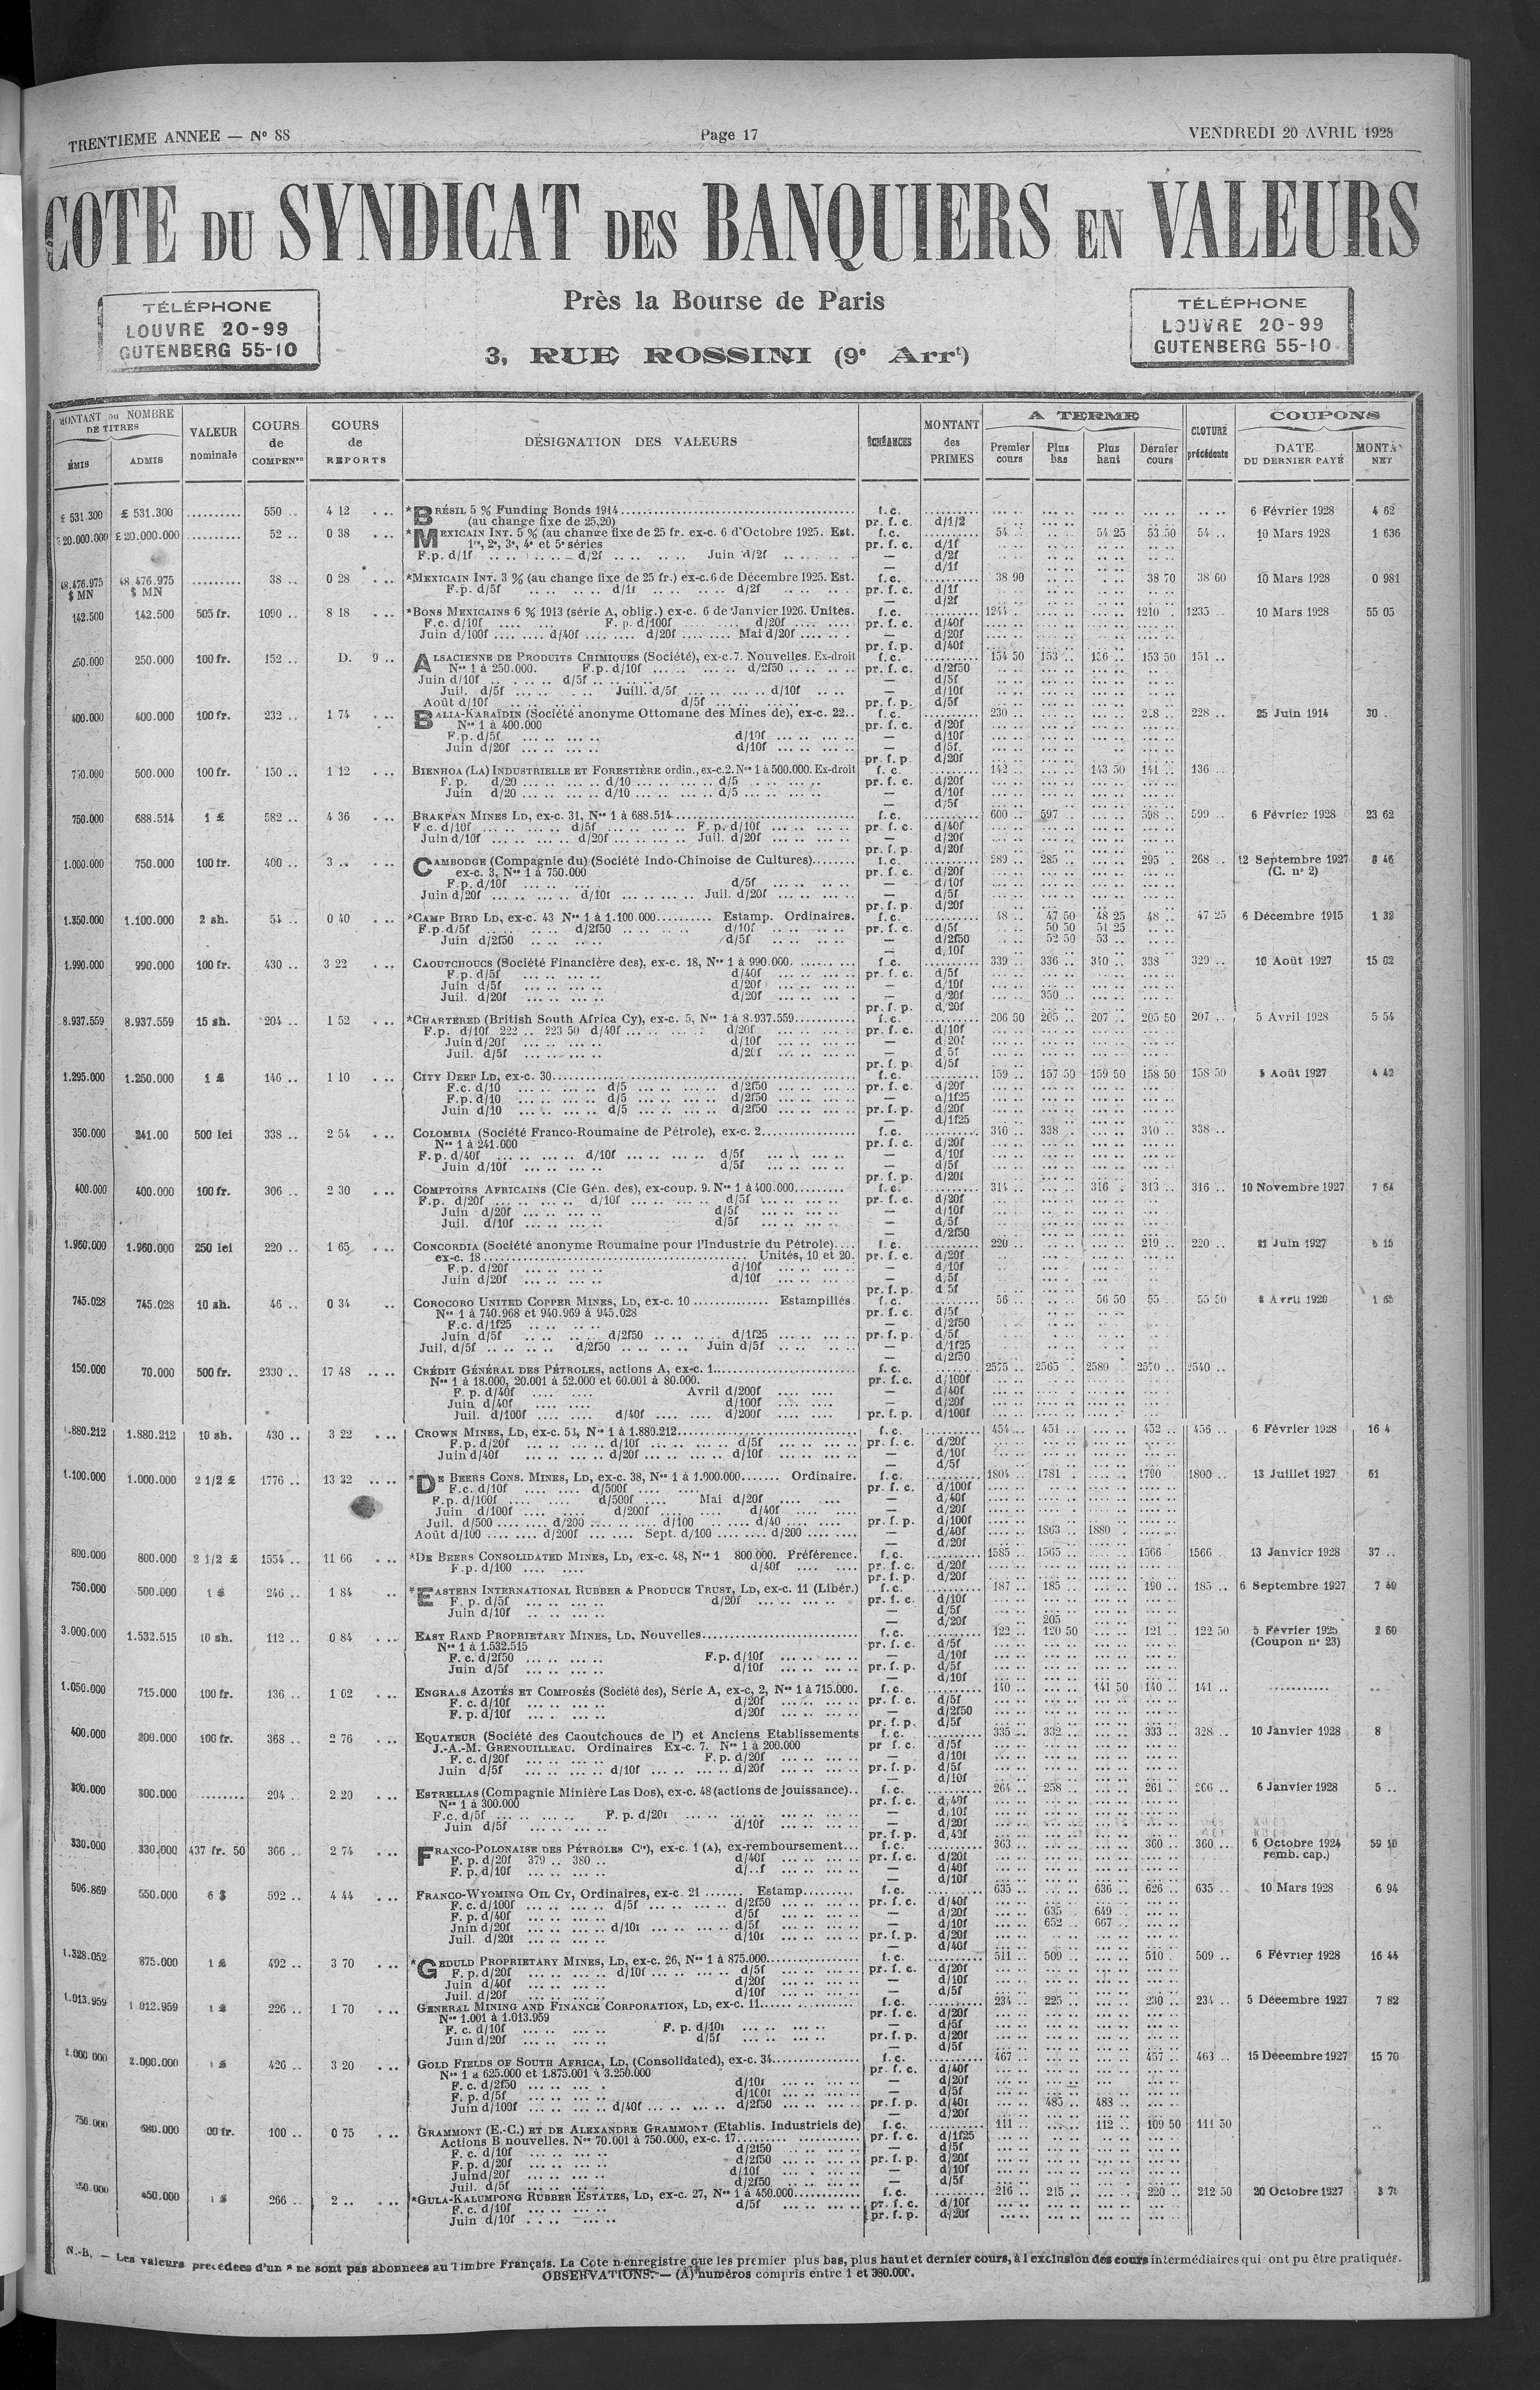 TRENTIEME ANNEE — No 88
Page 17
VENDREDI 20 AVRIL 1928
COTE DU SYNDICAT DES BANQUIERS EN VALEURS
TÉLÉPHONE
LOUVRE 20-99
GUTENBERG 55-10
Près la Bourse de Paris
3, RUE ROSSINI (9e Arrt)
TÉLÉPHONE
LOUVRE 20-99
GUTENBERG 55-10
MONTANT ou NOMBRE DE TITRES
ÉMIS
ADMIS
VALEUR nominale
COURS de COMPENon
COURS de REPORTS
DÉSIGNATION DES VALEURS
ÉCHÉANCES
MONTANT des PRIMES
A TERME
Premier cours
Plus bas
Plus haut
Dernier cours
CLOTURE précédente
COUPONS
DATE DU DERNIER PAYÉ
MONTA NET
£ 531.300 £ 531.300 .......... 550 .. 4 12 *BRÉSIL 5 % Funding Bonds 1914 f.c. 6 Février 1928 4 62
(au change fixe de 25,20) pr. f. c. d/1/2
20.000.000 £ 20.000.000 .......... 52 .. 0 38 *MEXICAIN INT. 5 % (au change fixe de 25 fr. ex-c. 6 d'Octobre 1925. Est. f.c. 54 .. 54 25 53 50 54 .. 10 Mars 1928 1 636
1re, 2e, 3e, 4e et 5e séries pr. f. c. d/1f
F.p. d/1f d/2f Juin d/2f — d/2f
— d/1f
48.476.975 $ MN 48.476.975 $ MN .......... 38 .. 0 28 *MEXICAIN INT. 3 % (au change fixe de 25 fr.) ex-c. 6 de Décembre 1925. Est. f.c. 38 90 38 70 38 60 10 Mars 1928 0 981
F.p. d/5f d/1f d/2f pr. f. c. d/1f
— d/2f
142.500 142.500 505 fr. 1090 .. 8 18 *BONS MEXICAINS 6 % 1913 (série A, oblig.) ex-c. 6 de Janvier 1926. Unites. f.c. 1244 .. 1210 .. 1235 .. 10 Mars 1928 55 05
F.c. d/10f F. p. d/100f d/20f pr. f. c. d/40f
Juin d/100f d/40f d/20f Mai d/20f — d/20f
pr. f.p. d/40f
250.000 250.000 100 fr. 152 .. D. 9 .. ALSACIENNE DE PRODUITS CHIMIQUES (Société), ex-c.7. Nouvelles. Ex-droit f.c. 154 50 153 .. 156 .. 153 50 151 ..
Nos 1 à 250.000. F.p. d/10f d/2f50 pr. f. c. d/2f50
Juin d/10f d/5f — d/5f
Juil. d/5f Juill. d/5f d/10f — d/10f
Août d/10f d/5f pr. f. p. d/5f
400.000 400.000 100 fr. 232 .. 1 74 BALIA-KARAÏDIN (Société anonyme Ottomane des Mines de), ex-c. 22.. f.c. 230 .. 228 .. 228 .. 25 Juin 1914 30 .
Nos 1 à 400.000 pr. f. c. d/20f
F.p. d/5f d/10f — d/10f
Juin d/20f d/10f — d/5f.
pr. f. p. d/20f
750.000 500.000 100 fr. 150 .. 1 12 BIENHOA (LA) INDUSTRIELLE ET FORESTIÈRE ordin., ex-c.2. Nos 1 à 500.000. Ex-droit f.c. 142 .. 143 50 141 .. 136 ..
F. p. d/20 d/10 d/5 pr. f. c. d/20f
Juin d/20 d/10 d/5 — d/10f
— d/5f
750.000 688.514 1 £ 582 .. 4 36 BRAKPAN MINES LD, ex-c. 31, Nos 1 à 688.514 f.c. 600 .. 597 .. 598 .. 599 .. 6 Février 1928 23 62
F.c. d/10f d/5f F. p. d/10f pr. f. c. d/40f
Juin d/10f d/20f Juil. d/20f — d/20f
pr. f. p. d/20f
1.000.000 750.000 100 fr. 400 .. 3 .. CAMBODGE (Compagnie du) (Société Indo-Chinoise de Cultures) f.c. 289 .. 285 .. 295 . 268 .. 12 Septembre 1927 8 46
ex-c. 3, Nos 1 à 750.000 pr. f. c. d/20f (C. no 2)
F.p. d/10f d/5f — d/10f
Juin d/20f d/10f Juil. d/20f — d/5f
pr. f. p. d/20f
1.350.000 1.100.000 2 sh. 54 .. 0 40 *CAMP BIRD LD, ex-c. 43 Nos 1 à 1.100.000 Estamp. Ordinaires. f.c. 48 .. 47 50 48 25 48 .. 47 25 6 Décembre 1915 1 32
F.p. d/5f d/2f50 d/10f pr. f. c. d/5f 50 50 51 25
Juin d/2f50 d/5f — d/2f50 52 50 53 ..
— d/10f
1.990.000 990.000 100 fr. 430 .. 3 22 CAOUTCHOUCS (Société Financière des), ex-c. 18, Nos 1 à 990.000. f.c. 339 .. 336 .. 340 .. 338 .. 329 .. 10 Août 1927 15 02
F.p. d/5f d/40f pr. f. c. d/5f
Juin d/5f d/20f — d/10f
Juil. d/20f d/20f — d/20f 350 ..
pr. f. p. d/20f
8.937.559 8.937.559 15 sh. 204 .. 1 52 *CHARTERED (British South Africa Cy), ex-c. 5, Nos 1 à 8.937.559 f.c. 206 50 205 .. 207 .. 205 50 207 .. 5 Avril 1928 5 54
F.p. d/10f 222 .. 223 50 d/40f d/20f pr. f. c. d/10f
Juin d/20f d/10f — d/20f
Juil. d/5f d/20f — d/5f
pr. f. p. d/5f
1.295.000 1.250.000 1 £ 146 .. 1 10 CITY DEEP LD, ex-c. 30 f.c. 159 .. 157 50 159 50 158 50 158 50 5 Août 1927 4 42
F.c. d/10 d/5 d/2f50 pr. f. c. d/20f
F.p. d/10 d/5 d/2f50 — d/1f25
Juin d/10 d/5 d/2f50 pr. f. p. d/20f
— d/1f25
350.000 241.00 500 lei 338 .. 2 54 COLOMBIA (Société Franco-Roumaine de Pétrole), ex-c. 2 f.c. 340 .. 338 .. 340 .. 338 ..
Nos 1 à 241.000 pr. f. c. d/20f
F.p. d/40f d/10f d/5f — d/10f
Juin d/10f d/5f — d/5f
pr. f. p. d/20f
400.000 400.000 100 fr. 306 .. 2 30 COMPTOIRS AFRICAINS (Cie Gén. des), ex-coup. 9. Nos 1 à 400.000 f.c. 314 .. 316 . 313 .. 316 .. 10 Novembre 1927 7 64
F.p. d/20f d/10f d/5f pr. f. c. d/20f
Juin d/20f d/5f — d/10f
Juil. d/10f d/5f — d/5f
— d/2f50
1.960.000 1.960.000 250 lei 220 .. 1 65 CONCORDIA (Société anonyme Roumaine pour l'Industrie du Pétrole) f.c. 220 .. 219 .. 220 .. 21 Juin 1927 5 15
ex-c. 18 Unités, 10 et 20. pr. f. c. d/20f
F.p. d/20f d/10f — d/10f
Juin d/20f d/10f — d/5f
pr. f. p. d/5f
745.028 745.028 10 sh. 46 .. 0 34 COROCORO UNITED COPPER MINES, LD, ex-c. 10 Estampillés f.c. 56 .. 56 50 55 .. 55 50 Avril 1920 1 65
Nos 1 à 740.968 et 940.969 à 945.028 pr. f. c. d/5f
F.c. d/1f25 — d/2f50
Juin d/5f d/2f50 d/1f25 pr. f. p. d/5f
Juil. d/5f d/2f50 Juin d/5f — d/1f25
— d/2f50
150.000 70.000 500 fr. 2330 .. 17 48 CRÉDIT GÉNÉRAL DES PÉTROLES, actions A, ex-c. 1 f.c. 2575 .. 2565 .. 2580 .. 2570 .. 2540 ..
Nos 1 à 18.000, 20.001 à 52.000 et 60.001 à 80.000. pr. f.c. d/100f
F. p. d/40f Avril d/200f — d/40f
Juin d/40f d/100f — d/20f
Juil. d/100f d/40f d/200f pr. f. p. d/100f
1.880.212 1.880.212 10 sh. 430 .. 3 22 CROWN MINES, LD, ex-c. 54, Nos 1 à 1.880.212 f.c. 454 .. 451 .. 452 .. 456 .. 6 Février 1928 16 4
F.p. d/20f d/10f d/5f pr. f. c. d/20f
Juin d/40f d/20f d/10f — d/10f
— d/5f
1.100.000 1.000.000 2 1/2 £ 1776 .. 13 32 *DE BEERS CONS. MINES, LD, ex-c. 38, Nos 1 à 1.000.000 Ordinaire. f.c. 1804 .. 1781 . 1790 . 1800 .. 13 Juillet 1927 61
F.c. d/10f d/500f pr. f. c. d/100f
F.p. d/100f d/500f Mai d/20f — d/40f
Juin d/100f d/200f d/40f — d/20f
Juil. d/500 d/200 d/100 d/40 pr. f. p. d/100f
Août d/100 d/200f Sept. d/100 d/200 — d/40f 1863 .. 1880 ..
— d/20f
800.000 800.000 2 1/2 £ 1554 .. 11 66 *DE BEERS CONSOLIDATED MINES, LD, ex-c. 48, Nos 1 800.000. Préférence. f.c. 1585 .. 1565 .. 1566 1566 . 13 Janvier 1928 37 ..
F.p. d/100 d/40f pr. f. c. d/20f
pr. f. p. d/20f
750.000 500.000 1 £ 246 .. 1 84 *EASTERN INTERNATIONAL RUBBER & PRODUCE TRUST, LD, ex-c. 11 (Libér.) f.c. 187 .. 185 .. 190 .. 185 .. 6 Septembre 1927 7 40
F. p. d/5f d/20f pr. f. c. d/10f
Juin d/10f — d/5f
— d/20f 205
3.000.000 1.532.515 10 sh. 112 .. 0 84 EAST RAND PROPRIETARY MINES, LD. Nouvelles f.c. 122 .. 120 50 121 .. 122 50 5 Février 1925 2 60
Nos 1 à 1.532.515 pr. f. c. d/5f (Coupon no 23)
F. c. d/2f50 F.p. d/10f — d/10f
Juin d/5f d/10f pr. f. p. d/5f
— d/10f
1.050.000 715.000 100 fr. 136 .. 1 02 ENGRAIS AZOTÉS ET COMPOSÉS (Société des), Série A, ex-c, 2, Nos 1 à 715.000. f.c. 140 .. 141 50 140 .. 141 ..
F. c. d/10f d/20f pr. f. c. d/5f
F. p. d/10f d/20f — d/2f50
pr. f. p. d/5f
400.000 200.000 100 fr. 368 .. 2 76 EQUATEUR (Société des Caoutchoucs de l') et Anciens Etablissements f.c. 335 .. 332 .. 333 .. 328 .. 10 Janvier 1928 8
J.-A.-M. GRENOUILLEAU. Ordinaires Ex-c. 7. Nos 1 à 200.000 pr f. c. d/5f
F. c. d/20f F. p. d/20f — d/10f
Juin d/5f d/10f d/20f pr. f. p. d/5f
— d/10f
300.000 300.000 ......... 294 .. 2 20 ESTRELLAS (Compagnie Minière Las Dos), ex-c. 48 (actions de jouissance).. f.c. 264 .. 258 .. 261 .. 266 .. 6 Janvier 1928 5 ..
Nos 1 à 300.000 pr. f. c. d/40f
F.c. d/5f F. p. d/20f — d/10f
Juin d/5f d/10f — d/20f
pr. f. p. d/40f
330.000 330.000 437 fr. 50 366 .. 2 74 FRANCO-POLONAISE DES PÉTROLES Cie), ex-c. 1 (A), ex-remboursement f.c. 363 .. 360 .. 360 .. 6 Octobre 1924 59 10
F. p. d/20f 379 .. 380 .. d/40f pr. f. c. d/20f remb. cap.)
F. p. d/10f d/..f — d/40f
— d/10f
596.869 550.000 6 $ 592 .. 4 44 FRANCO-WYOMING OIL CY, Ordinaires, ex-c. 21 Estamp. f.c. 635 .. 636 .. 626 .. 635 .. 10 Mars 1928 6 94
F. c. d/100f d/5f d/2f50 pr. f. c. d/40f
F. p. d/40f d/5f — d/20f 635 649 ..
Juin d/20f d/10f d/5f — d/10f 652 .. 667 ..
Juil. d/20f d/10f pr. f. p. d/20f
— d/40f
1.328.052 875.000 1 £ 492 .. 3 70 *GEDULD PROPRIETARY MINES, LD, ex-c. 26, Nos 1 à 875.000 f.c. 511 .. 509 .. 510 .. 509 .. 6 Février 1928 16 44
F. p. d/20f d/10f d/5f pr. f. c. d/20f
Juin d/40f d/20f — d/10f
Juil. d/20f d/10f — d/5f
1.013.959 1 012.959 1 £ 226 .. 1 70 GENERAL MINING AND FINANCE CORPORATION, LD, ex-c. 11 f.c. 234 .. 225 .. 230 .. 234 .. 5 Décembre 1927 7 82
Nos 1.001 à 1.013.959 pr. f. c. d/20f
F. c. d/10f F. p. d/10f — d/5f
Juin d/20f d/5f pr. f. p. d/20f
— d/5f
2.000 000 2.000.000 1 £ 426 .. 3 20 GOLD FIELDS OF SOUTH AFRICA, LD, (Consolidated), ex-c. 34 f.c. 467 .. 457 .. 463 .. 15 Décembre 1927 15 70
Nos 1 à 625.000 et 1.875.001 à 3.250.000 pr. f. c. d/40f
F. c. d/2f50 d/10f — d/20f
F. p. d/5f d/100f — d/5f
Juin d/100f d/40f d/2f50 pr. f. p. d/40f 485 .. 488 ..
— d/20f
750.000 680.000 00 fr. 100 .. 0 75 GRAMMONT (E.-C.) ET DE ALEXANDRE GRAMMONT (Etablis. Industriels de) f.c. 111 .. 112 .. 109 50 111 50
Actions B nouvelles. Nos 70.001 à 750.000, ex-c. 17 pr. f. c. d/1f25
F. c. d/10f d/2f50 — d/5f
F. p. d/20f d/2f50 pr. f. p. d/20f
Juin d/20f d/10f — d/10f
Juil. d/5f d/2f50 — d/5f
450.000 1 £ 266 .. 2 .. *GULA-KALUMPONG RUBBER ESTATES, LD, ex-c. 27, Nos 1 à 450.000 f.c. 216 .. 215 .. 220 .. 212 50 20 Octobre 1927
F. c. d/10f d/5f pr. f. c. d/10f
Juin d/10f pr. f. p. d/20f
N.-B. — Les valeurs précédées d'un * ne sont pas abonnées au Timbre Français. La Cote n'enregistre que les premier plus bas, plus haut et dernier cours, à l'exclusion des cours intermédiaires qui ont pu être pratiqués.
OBSERVATIONS. — (A) numéros compris entre 1 et 380.000.